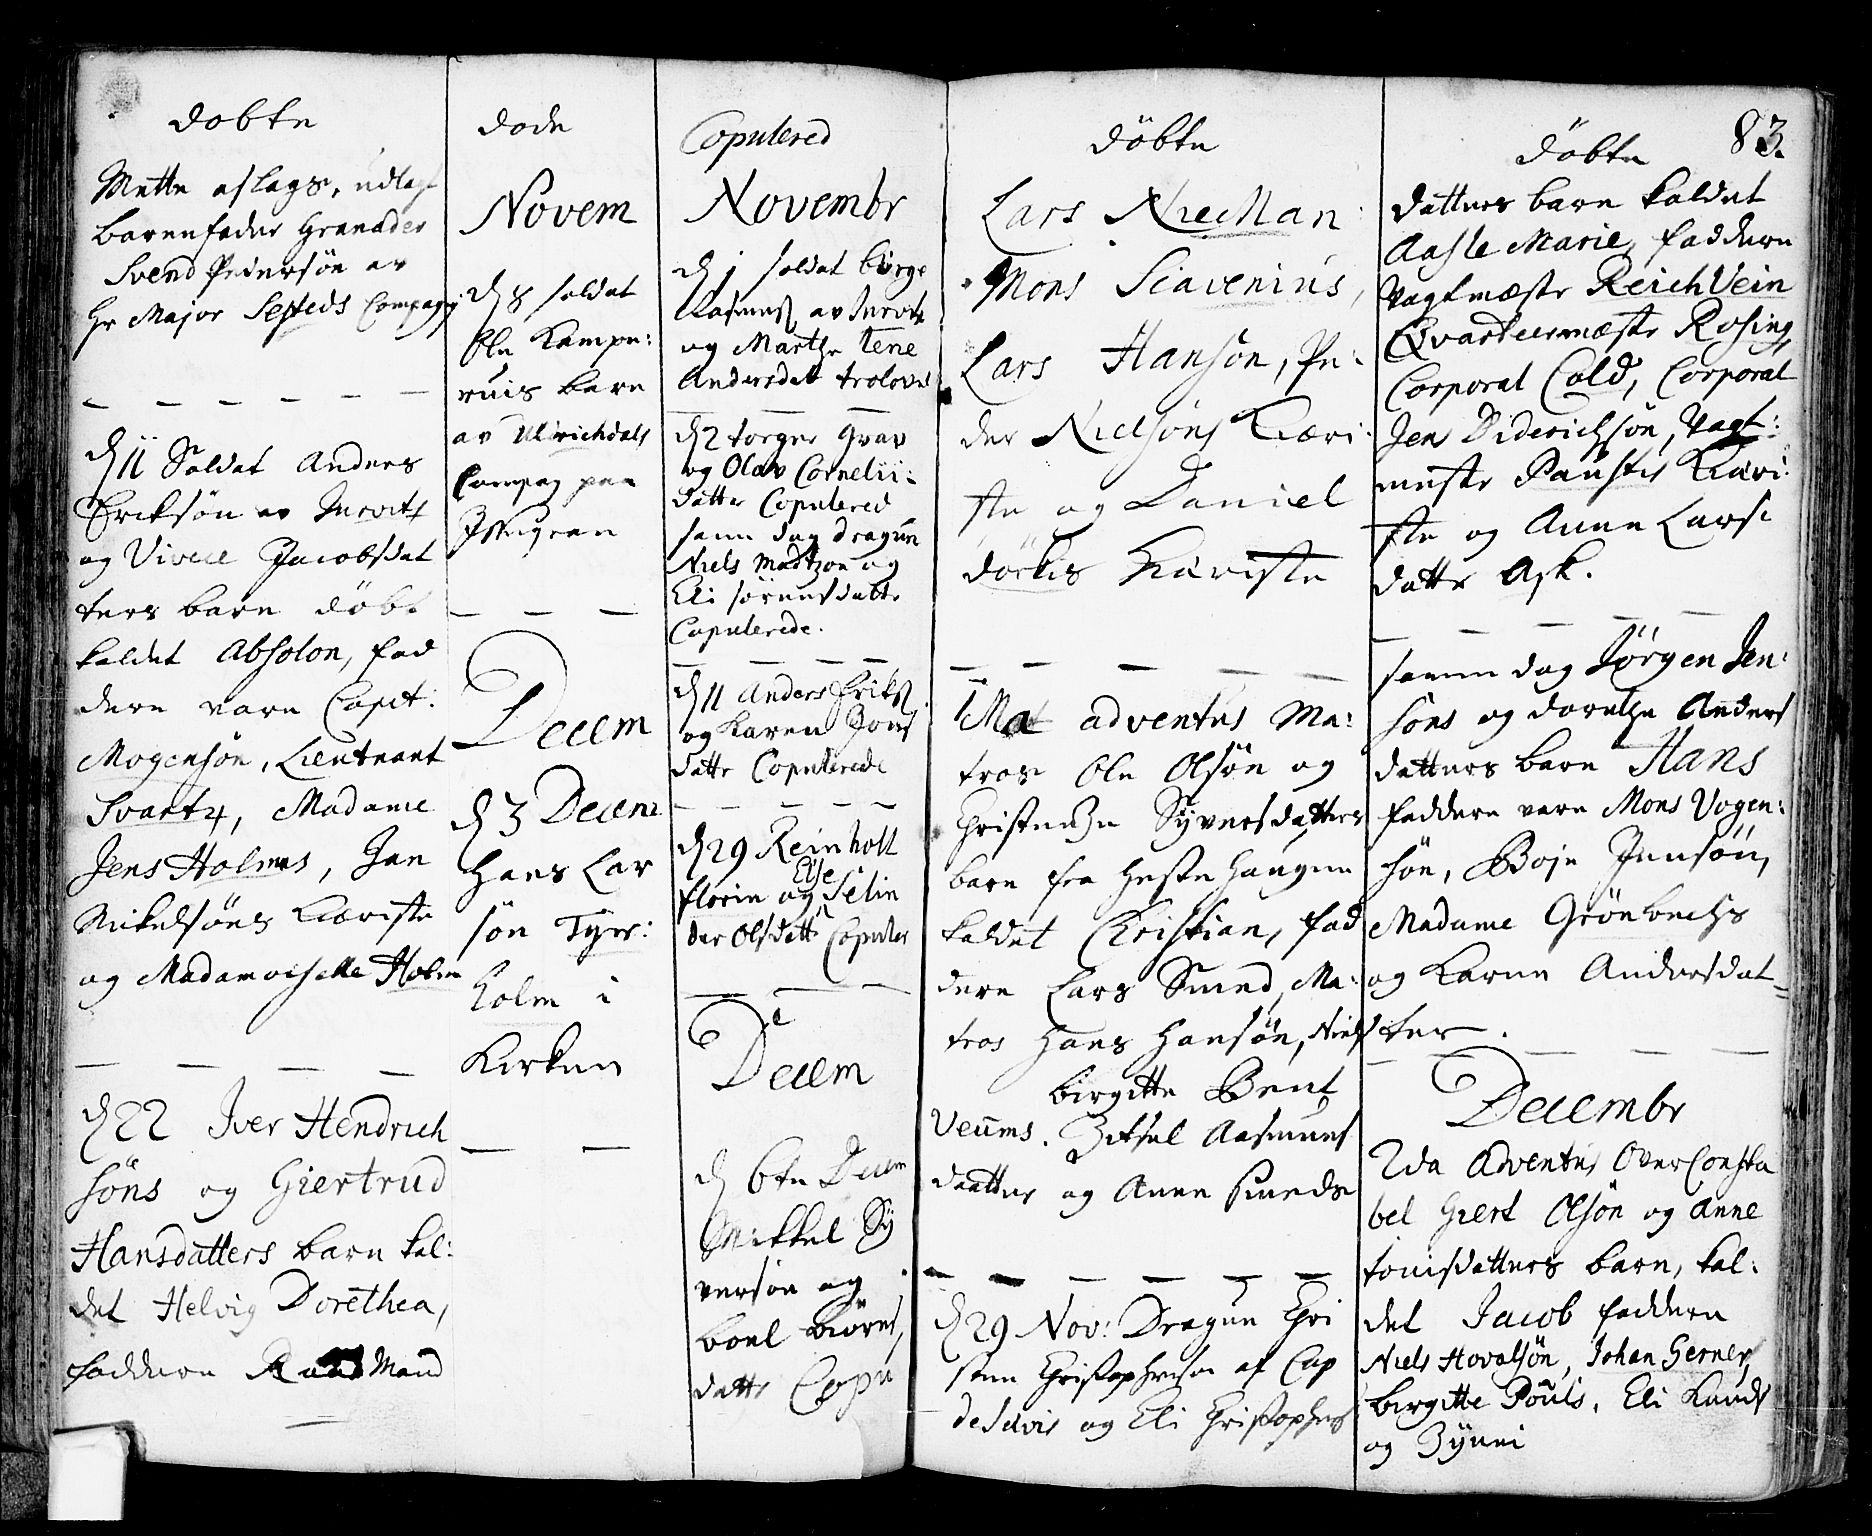 dobte
Mette aslags, udlagt
barnefader Granader
Svend Pedersøn av
Hr Major Sesteds Compagn:
d 11 Soldat Anders
Eriksøn av
og Vivece Jacobsdat
ters barn döbt
kaldet Absolon, fad
dere vare Capit:
Mogensøn, Lieutnant
Svartz, Madame
Jens Holmes, Jan
Mikelsøns Kæriste
og Madamoiselle Holm
d 22 Iver Hendrich
söns og Giertrud
Hansdatters barn kal:
det Helvig Dorethea,
faddere Raad Mand
dode
Novem
d 8 soldat
Ole Kampe:
ruis barn
av Ulrichdals
Compag paa
Decem
d 3 Decem
Hans Lar
søn Tyr:
holm i
Kirken
Copulered
Novembr
d 1 soldat børge
Rasmus av
og Marthe tene
Andersdatt trolovet
d 2 torger Grav
og Olav Cornelii:
datter Copulered
samme dag dragun
Niels Madtzon og
Eli sörensdatter
Copulerede.
d 11 Anders Eriks
og Karen Jons
datter Copulerede
d 29 Reinholt
florin og Else Selin
der Olsdatter Copuler
Decem
d 6te Decem
Mikkel Sy
versøn og
boel biörns,
datter Copu
döbte
Lars NieMan
Mons Scavenius,
Lars Hansøn, Pe:
der Nielsøns Kæri:
ste og Daniel
dörkis Kæriste
1 Ma adventus Ma:
tros Ole Olsøn og
Christense Syversdatters
barn fra Hestehaugen
kaldet Christian, fad
dere Lars Smed, Ma:
tros Hans Hansøn, Niels
birgitte Bent
Veums. Zitsel Aasmuns
daatter og Anne smeds
d 29 Nov: Dragun Chri
sten Christophersøn af Cap
de Seuis og Eli Christophers
83.
döbte
datters barn kaldet
Aasle Marie, faddere
Vagtmæster ReichVein
Qvarteermæster Rosing,
Corporal Cold, Corporal
Jens Diderichsøn, Vagt:
mester Paustis Kæri:
ste og Anne Lars:
datter Ask.
samme dag Jørgen Jen:
söns og dorethe Anders
datters barn Hans
faddere vare Mons Vogen:
sön, Boje Jensøn,
Madame Grönbechs
og Karen Andersdat=
ter.
Decembr
2da Adventus OverConsta
bel Giert Olsøn og anne
touisdatters barn, kal:
det Jacob faddere
Niels Hovalsøn, Johan Gerner,
birgitte Pouls, Eli Knuds
og